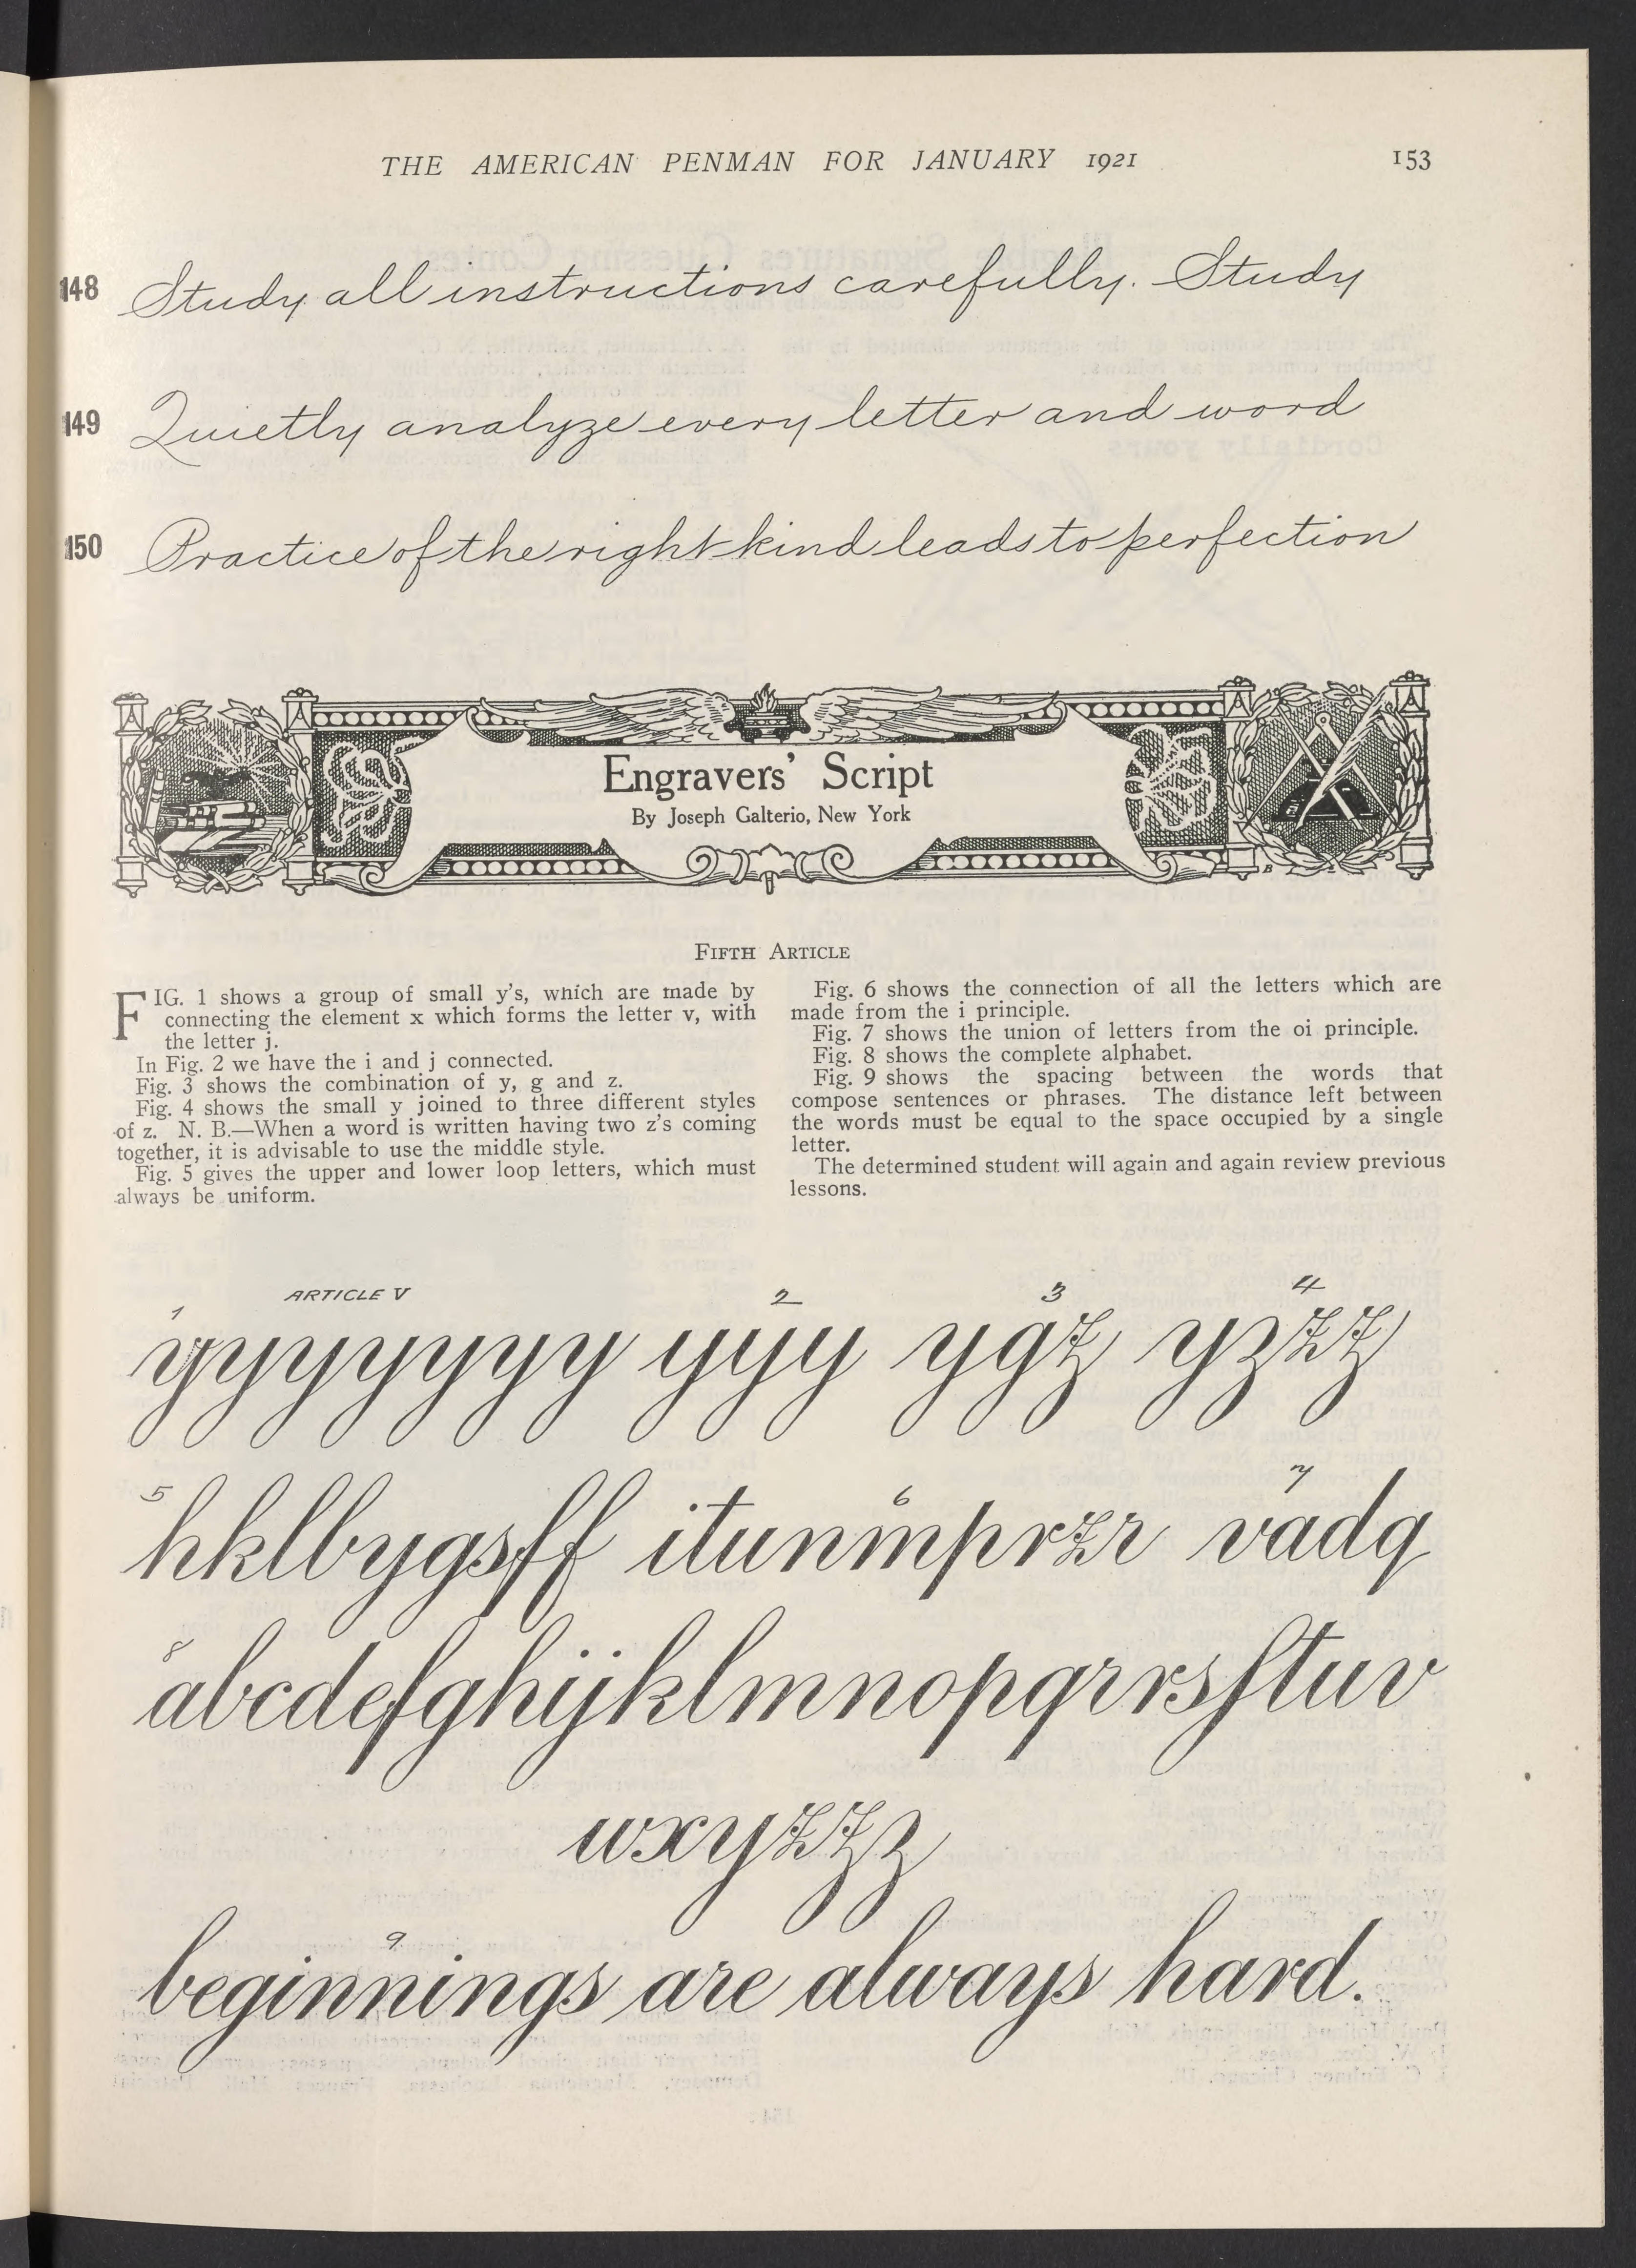 THE AMERICAN PENMAN FOR JANUARY 1921 153
148 Study all instructions carefully. Study
149 Quietly analyze every letter and word
150 Practice of the right kind leads to perfection
Engravers' Script
By Joseph Galterio, New York
FIFTH ARTICLE
FIG. 1 shows a group of small y's, which are made by
connecting the element x which forms the letter v, with
the letter j.
In Fig. 2 we have the i and j connected.
Fig. 3 shows the combination of y, g and z.
Fig. 4 shows the small y joined to three different styles
of z. N. B.—When a word is written having two z's coming
together, it is advisable to use the middle style.
Fig. 5 gives the upper and lower loop letters, which must
always be uniform.
Fig. 6 shows the connection of all the letters which are
made from the i principle.
Fig. 7 shows the union of letters from the oi principle.
Fig. 8 shows the complete alphabet.
Fig. 9 shows the spacing between the words that
compose sentences or phrases. The distance left between
the words must be equal to the space occupied by a single
letter.
The determined student will again and again review previous
lessons.
ARTICLE V
1 2 3 4
yyyyyyy yyy ygz yzzz
5 6 7
hklbygsff itunmprzr vadq
8
abcdefghijklmnopqrrsftuv
wxyzzz
9
beginnings are always hard.